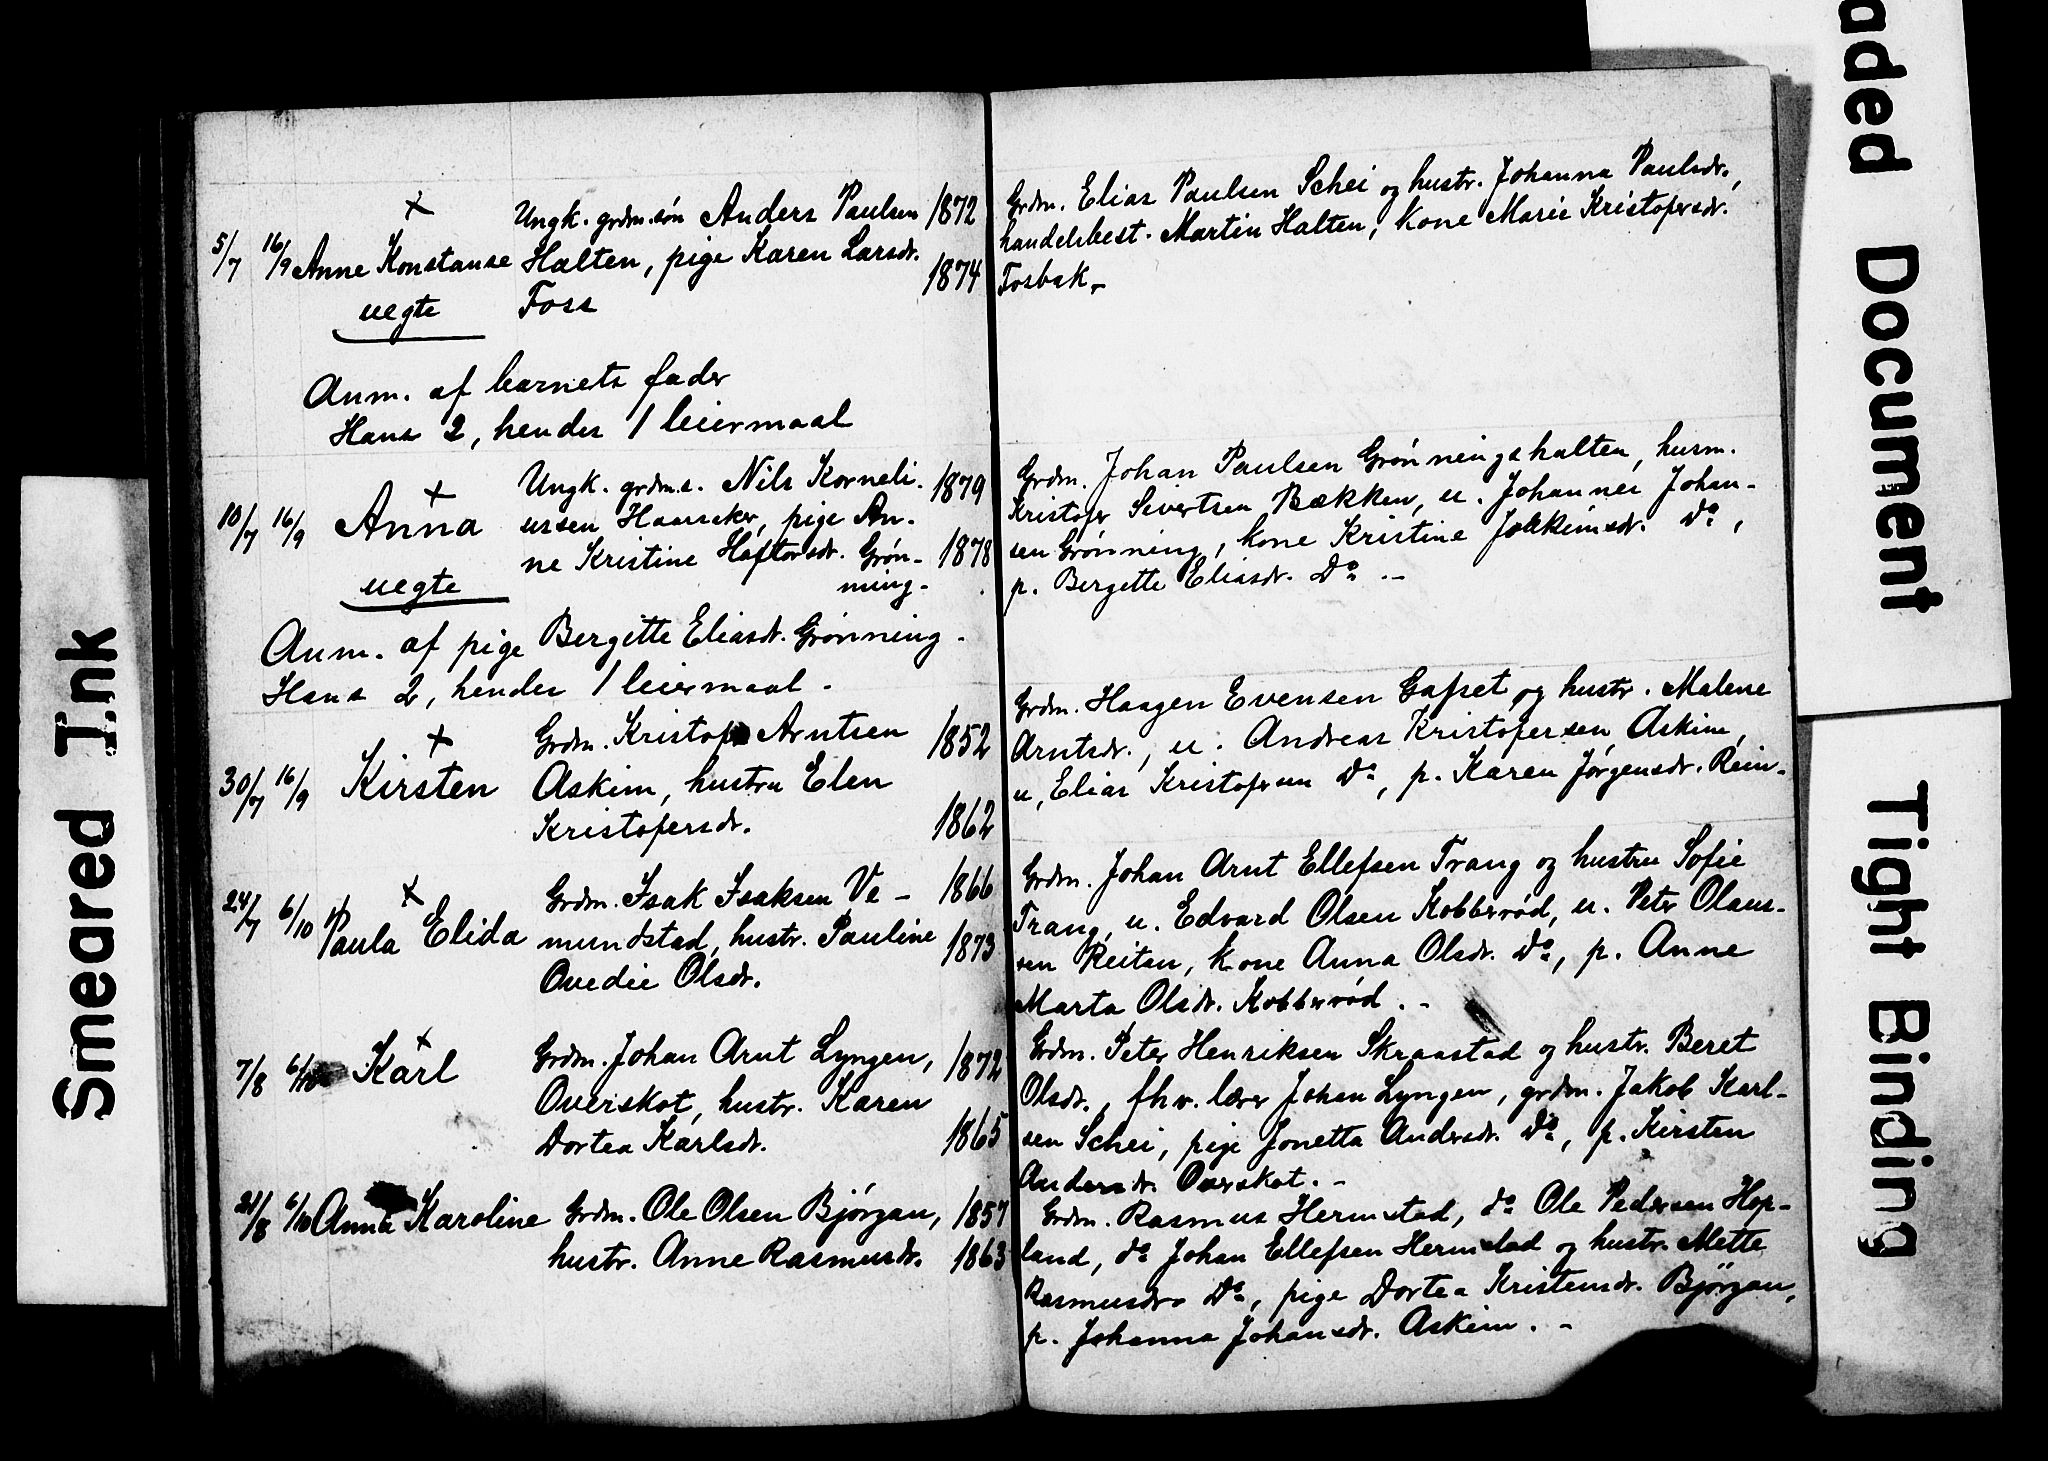 5/7 16/9 + Ungk. grdm.søn Anders Paulsen 1872
Anne Konstanse Halten, pige Karen Larsdr. 1874
uegte Foss
Anm. af barnets fader
Hans 2, hendes 1 leiermaal
10/7 16/9 + Ungk. grdm.s. Nils Korneli- 1879
Anna ussen Haarsaker, pige An-
ne Kristine Haftorsdr. Grøn- 1878
uegte ning.
Anm. af pige Bergitte Eliasdr. Grønning.
Hans 2, hendes 1 leiermaal.
+ Grdm. Kristofer Arntsen 1852
30/7 16/9 Kirsten Askim, hustru Elen
Kristofersdr. 1862
+ Grdm. Isak Isaksen Ve- 1866
24/7 6/10 Paula Elida mundstad, hustr. Pauline 1873
Ovedie Olsdr.
+ Grdm. Johan Arnt Lyngen, 1872
7/8 6/10 Karl Overskot, hustr. Karen
Dortea Karlsdr. 1865
21/8 6/10 Anna Karoline Grdm. Ole Olsen Bjørgan, 1857
hustr. Anne Rasmusdr. 1863
Grdm. Elias Paulsen Schei og hustr. Johanna Paulsdr.,
handelsbest. Martin Halten, kone Marie Kristofersdr.
Fosbak.-
Grdm. Johan Paulsen Grønningshalten, husm.
Kristofer Sivertsen Bækken, u. Johannes Johan-
sen Grønning, kone Kristine Joakimsdr. Do,
p. Bergette Eliasdr. Do.-
Grdm. Haagen Evensen Gafset og hustr. Malene
Arntsdr., u. Andreas Kristofersen Askim,
u. Elias Kristofersen Do, p. Karen Jørgensdr. Rein-
Grdm. Johan Arnt Ellefsen Trang og hustru Sofie
Trang, u. Edvard Olsen Kobberød, u. Peter Olaus-
sen Reitan, kone Anna Olsdr. Do, p. Anne
Marta Olsdr. Kobberød.-
Grdm. Peter Henriksen Skraastad og hustr. Beret
Olsdr., fhv. lærer Johan Lyngen, grdm. Jakob Karl-
sen Schei, pige Jonetta Andersdr. Do, p. Kirsten
Andersdr. Overskot.-
Grdm. Rasmus Hermstad, do Ole Pedersen Hop-
land, do Johan Ellefsen Hermstad og hustr. Mette
Rasmusdr. Do, pige Dortea Kristensdr. Bjørgan,
p. Johanna Johansdr. Askim.-
Smeared Ink
aded Document
Tight Binding